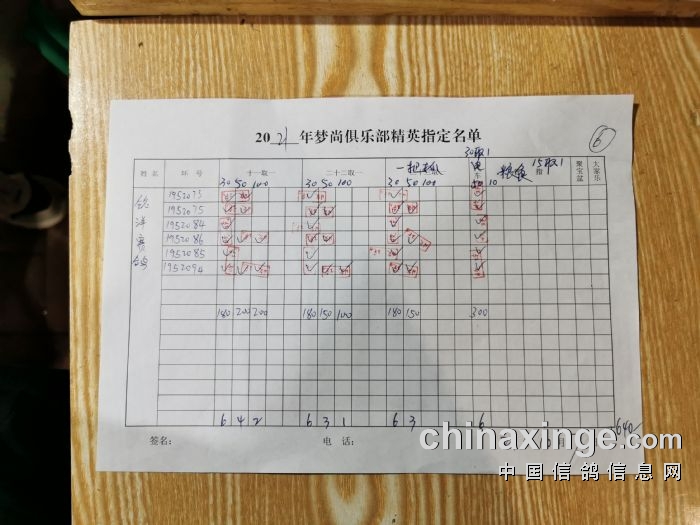 2021年梦尚俱乐部精英指定名单
6
30取1
姓名 环号 十一取一 二十二取一 车 粮食 15取1 指 聚宝盆 大家乐
30 50 100 30 50 100 30 50 100 10
洋赛
1952073
1952075
1952084
1952086
1952085
1952094
180 200 200 180 150 100 180 150 300
6 4 2 6 3 1 6 3 6
签名: 电话: 1640
chinaxinge.com
中国信鸽信息网